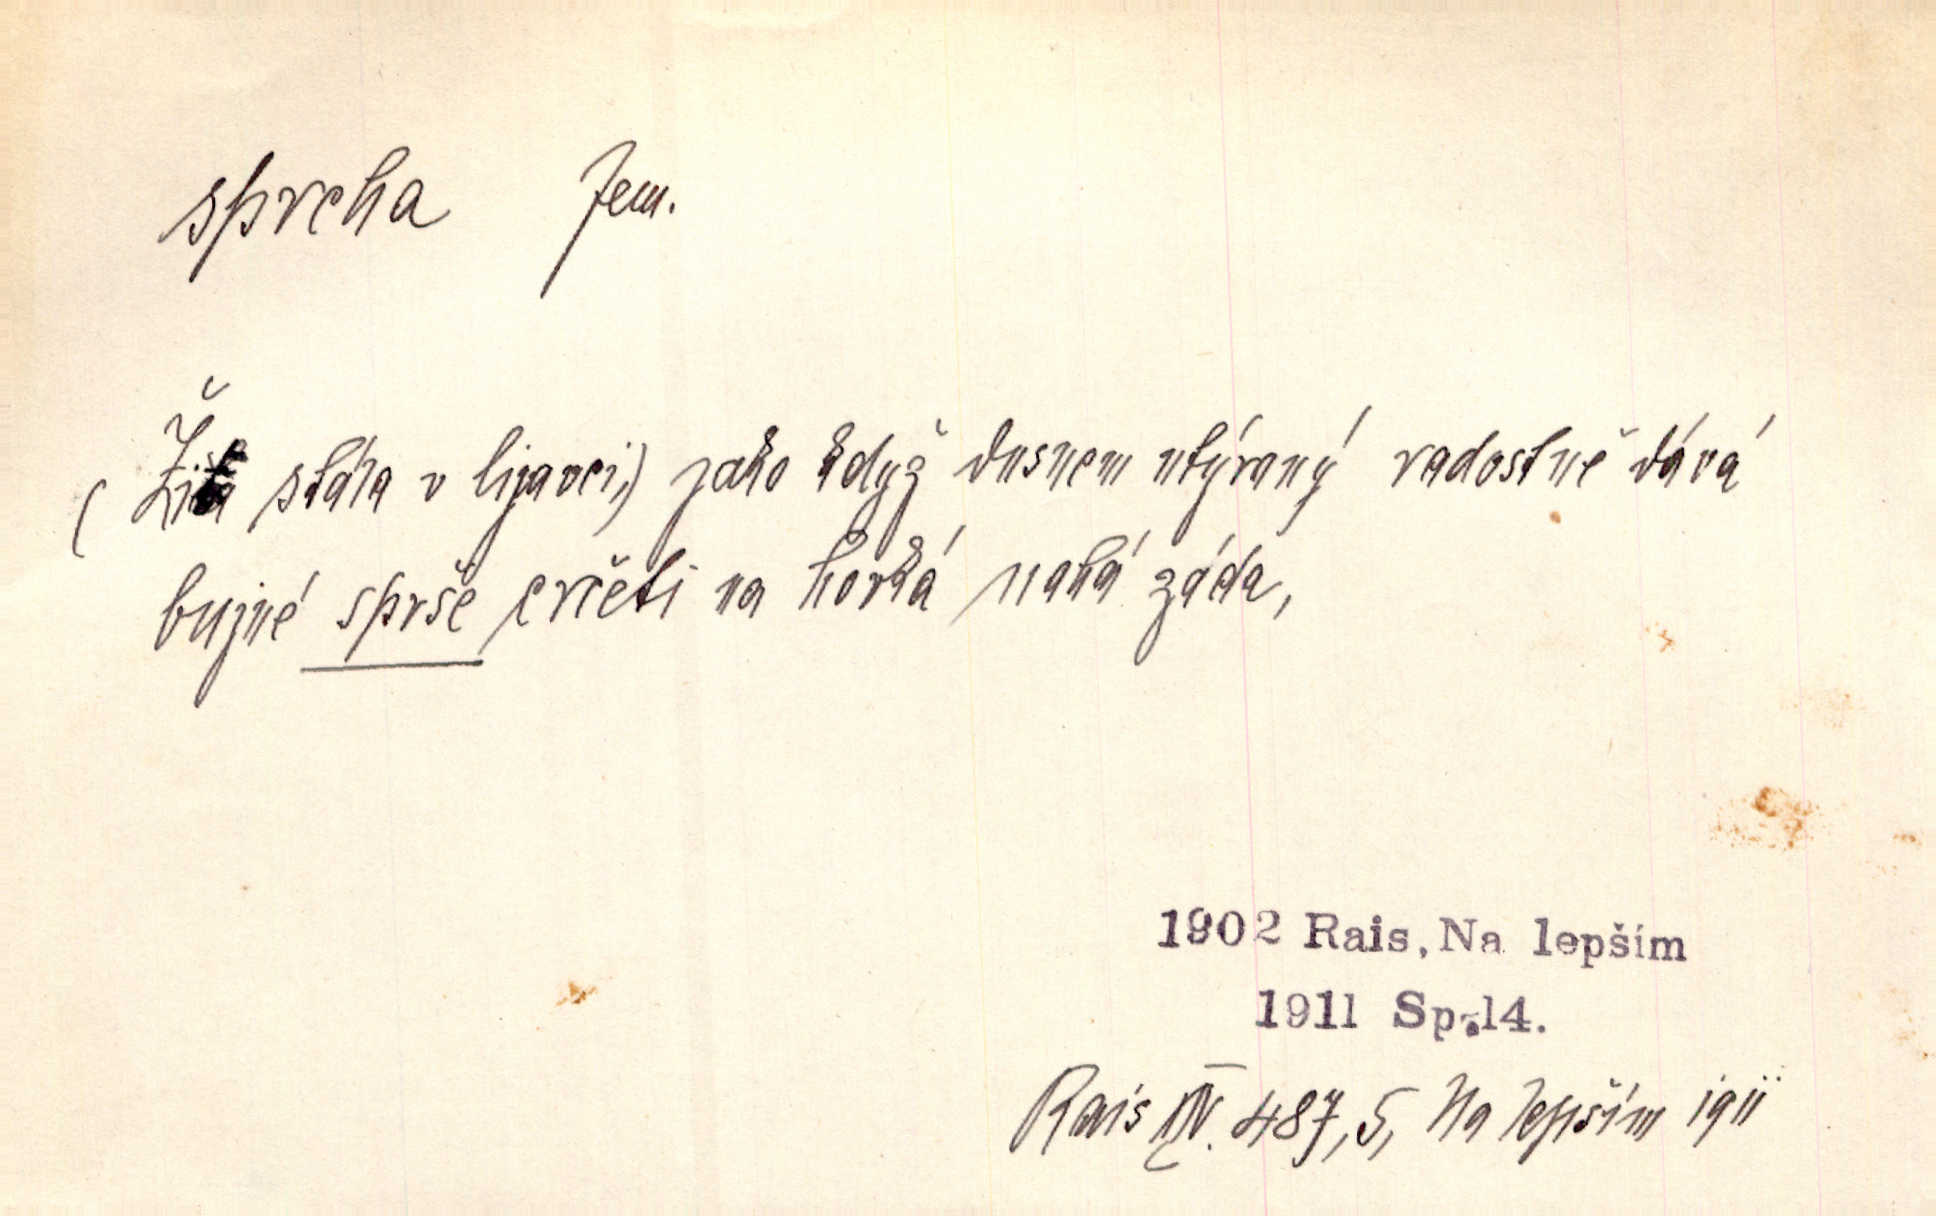 sprcha fem.
(Žita stála v lijavci,) jako když dusnem utýraný radostně dává
bujné sprše crčeti na horká nahá záda,
1902 Rais, Na lepším
1911 Sp. 14.
Rais IV. 487, 5, Na lepším 1911